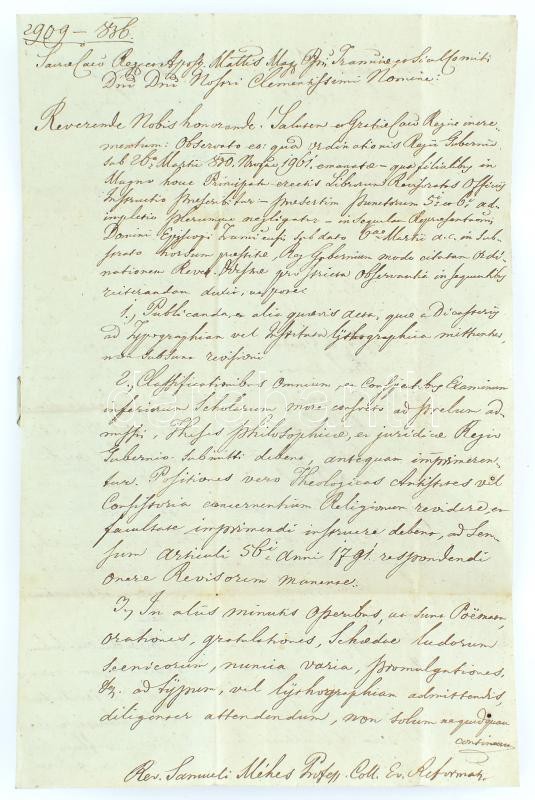 2909 – 836.
Sacrae Caeo Regeo Apost. Mattis Mag. Ppis Tranniae et Siculorum Comitis
Dni Dni Nostri Clementissimi Nomine:
Reverende Nobis honorande! Salutem et Gratiae Caeo Regiae incre-
mentum: Observato eo: quod ordinationis Regii Gubernii
sub 26a Martii 830. Nro 1961 emanatae – qua filialibus in
Magno hocce Principatu erectis Librorum Revisoratus Officiis
Instructio praescribitur – praesertim punctorum 5i et 6i ad-
impletio plerumque negligatur – in sequelam Repraesentationis
Domini Episcopi Tranniensis sub dato 6ae Martii a. c. in sub-
strato horsum praestitae, Reg. Gubernium modo citatam Ordi-
nationem pro stricta Observantia in sequentibus
reiterandam duxit, utpote
1.) Publicanda, et alia quaevis acta, quae a Dicasteriis
ad typographiam vel Institutum lythographicum mittuntur,
non subsunt revisioni
2.) Classificationibus omnium, et Conspectibus Examinum
inferiorum Scholarum more consveto ad proelum ad-
missis, Theses Philosophicae, et juridicae Regio
Gubernio submitti debent, antequam imprimeren-
tur. Positiones vero Theologicas Antistites vel
Consistoria concernentium Religionum revidere, et
facultate imprimendi instruere debent, ad Sen-
sum articuli 56i anni 1791. respondendi
onere Revisorum manente.
3.) In aliis minutis Operibus, ut sunt Poëmata,
orationes, gratulationes, Schedae ludorum
scenicorum, nuncia varia, promulgationes,
&. ad typum, vel lythographiam admittendis,
diligenter attendendum, non solum ne quidquam
contineant
Rev. Samueli Méhes Profess. Coll. Ev. Reformat.
darabanth